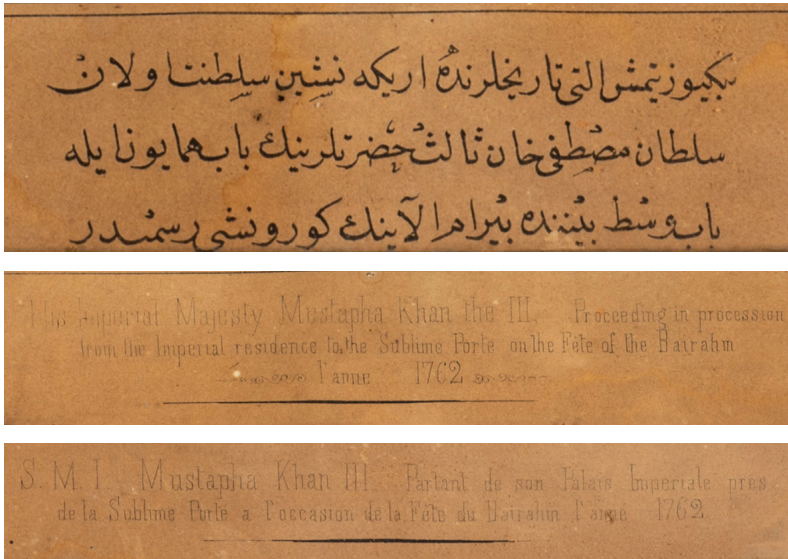 بيكيوزيتمش التى تاريخلرنده اريكه نشين سلطنتا ولان
سلطان مصطفى خان ثالث حضرتلرينك باب همايونا يله
باب وسط بيننده بيرام الآينك كورونشى رسميدر
His Imperial Majesty Mustapha Khan the III. Proceeding in procession
from the Imperial residence to the Sublime Porte on the Fête of the Bairahm
l'anne 1762
S. M. I. Mustapha Khan III. Partant de son Palais Imperiale pres
de la Sublime Porte a l'occasion de la Fête du Bairahm l'anne 1762